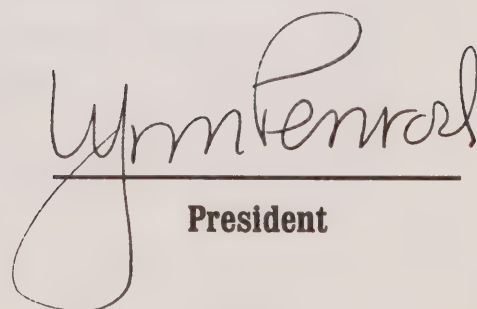 Lynn Penrod
President